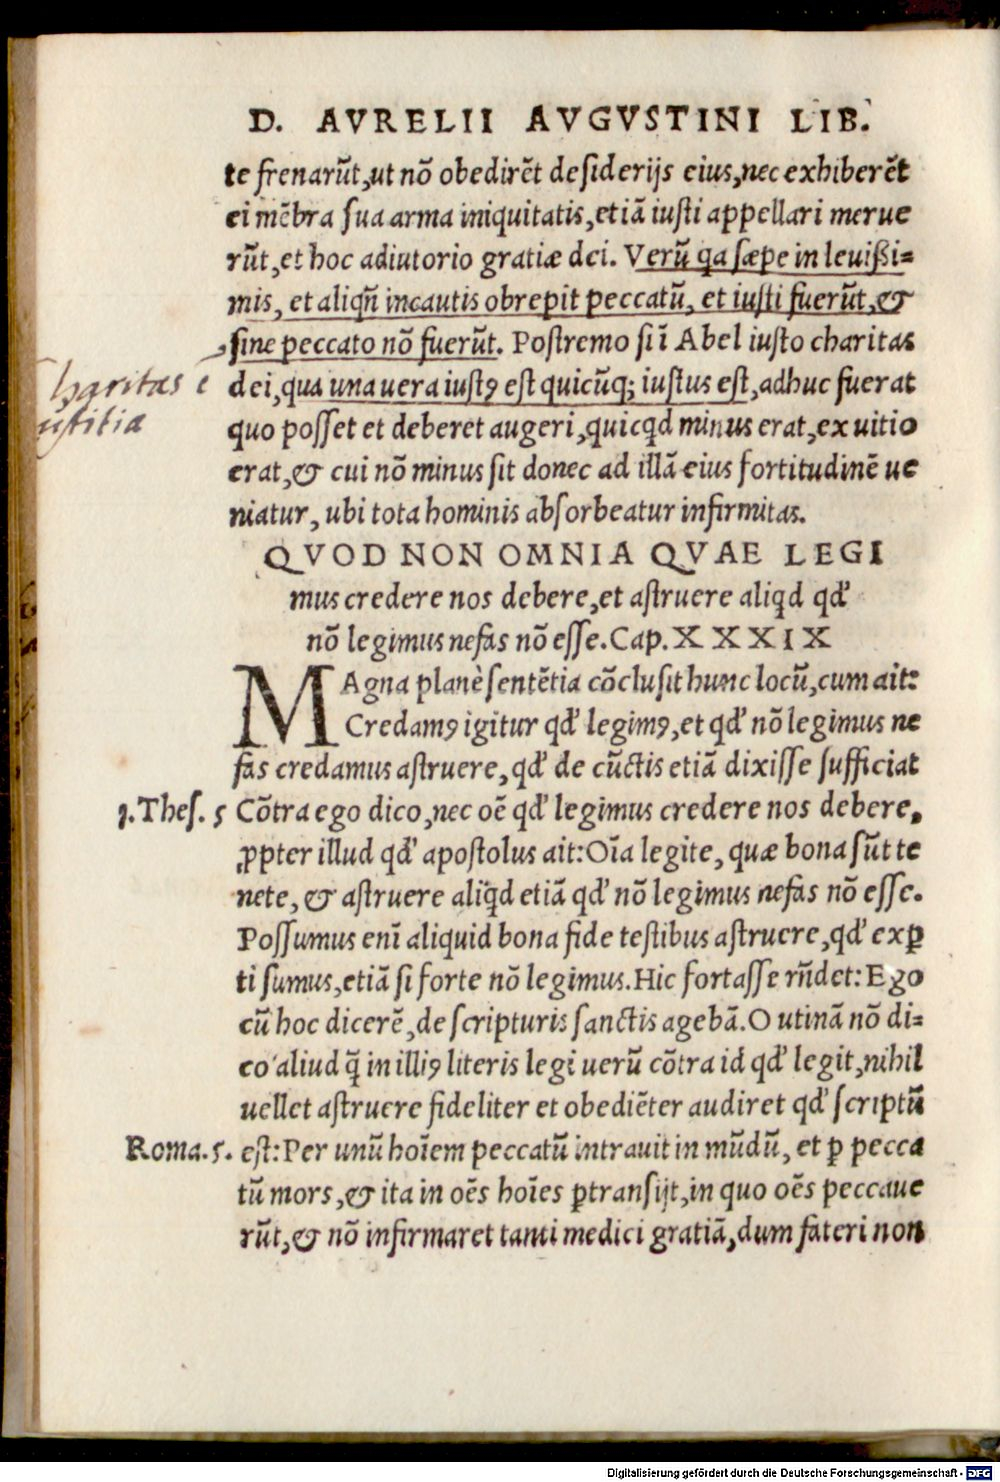 D. AVRELII AVGVSTINI LIB.
te frenarūt, ut nō obedirēt desiderijs eius, nec exhiberēt
ei mēbra sua arma iniquitatis, etiā iusti appellari merue
rūt, et hoc adiutorio gratiæ dei. Verū qa sæpe in leuißi=
mis, et aliqñ incautis obrepit peccatū, et iusti fuerūt, &
sine peccato nō fuerūt. Postremo si ī Abel iusto charitas
haritas e
dei, qua una uera iustꝯ est quicūq; iustus est, adhuc fuerat
ustitia
quo posset et deberet augeri, quicqd minus erat, ex uitio
erat, & cui nō minus sit donec ad illā eius fortitudinē ue
niatur, ubi tota hominis absorbeatur infirmitas.
QVOD NON OMNIA QVAE LEGI
mus credere nos debere, et astruere aliqd qd'
nō legimus nefas nō esse. Cap. XXXIX
MAgna planè sentētia cōclusit hunc locū, cum ait:
Credamꝯ igitur qd' legimꝯ, et qd' nō legimus ne
fas credamus astruere, qd' de cūctis etiā dixisse sufficiat
1. Thes. 5 Cōtra ego dico, nec oē qd' legimus credere nos debere,
ꝓpter illud qd' apostolus ait: Oīa legite, quæ bona sūt te
nete, & astruere aliqd etiā qd' nō legimus nefas nō esse.
Possumus enī aliquid bona fide testibus astruere, qd' exꝑ
ti sumus, etiā si forte nō legimus. Hic fortasse rñdet: Ego
cū hoc dicerē, de scripturis sanctis agebā. O utinā nō di=
co aliud q̄ in illiꝯ literis legi uerū cōtra id qd' legit, nihil
uellet astruere fideliter et obediēter audiret qd' scriptū
Roma. 5. est: Per unū hoīem peccatū intrauit in mūdū, et ꝑ pecca
tū mors, & ita in oēs hoīes ꝑtransijt, in quo oēs peccaue
rūt, & nō infirmaret tanti medici gratiā, dum fateri non
Digitalisierung gefördert durch die Deutsche Forschungsgemeinschaft - DFG